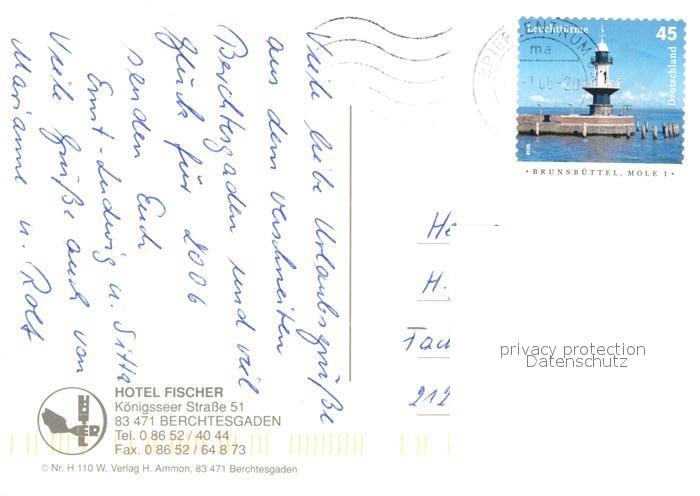 Viele liebe Urlaubsgrüße
aus dem verschneiten
Berchtesgaden und viel
Glück für 2006
senden Euch
Ernst-Ludwig u. Gitta
Viele Grüße auch von
Marianne u. Rolf
Leuchttürme
45
Deutschland
BRIEFZENTRUM
ma
BRUNSBÜTTEL, MOLE 1
H.
212
privacy protection
Datenschutz
HOTEL
HOTEL FISCHER
Königsseer Straße 51
83 471 BERCHTESGADEN
Tel. 0 86 52 / 40 44
Fax. 0 86 52 / 64 8 73
© Nr. H 110 W, Verlag H. Ammon, 83 471 Berchtesgaden